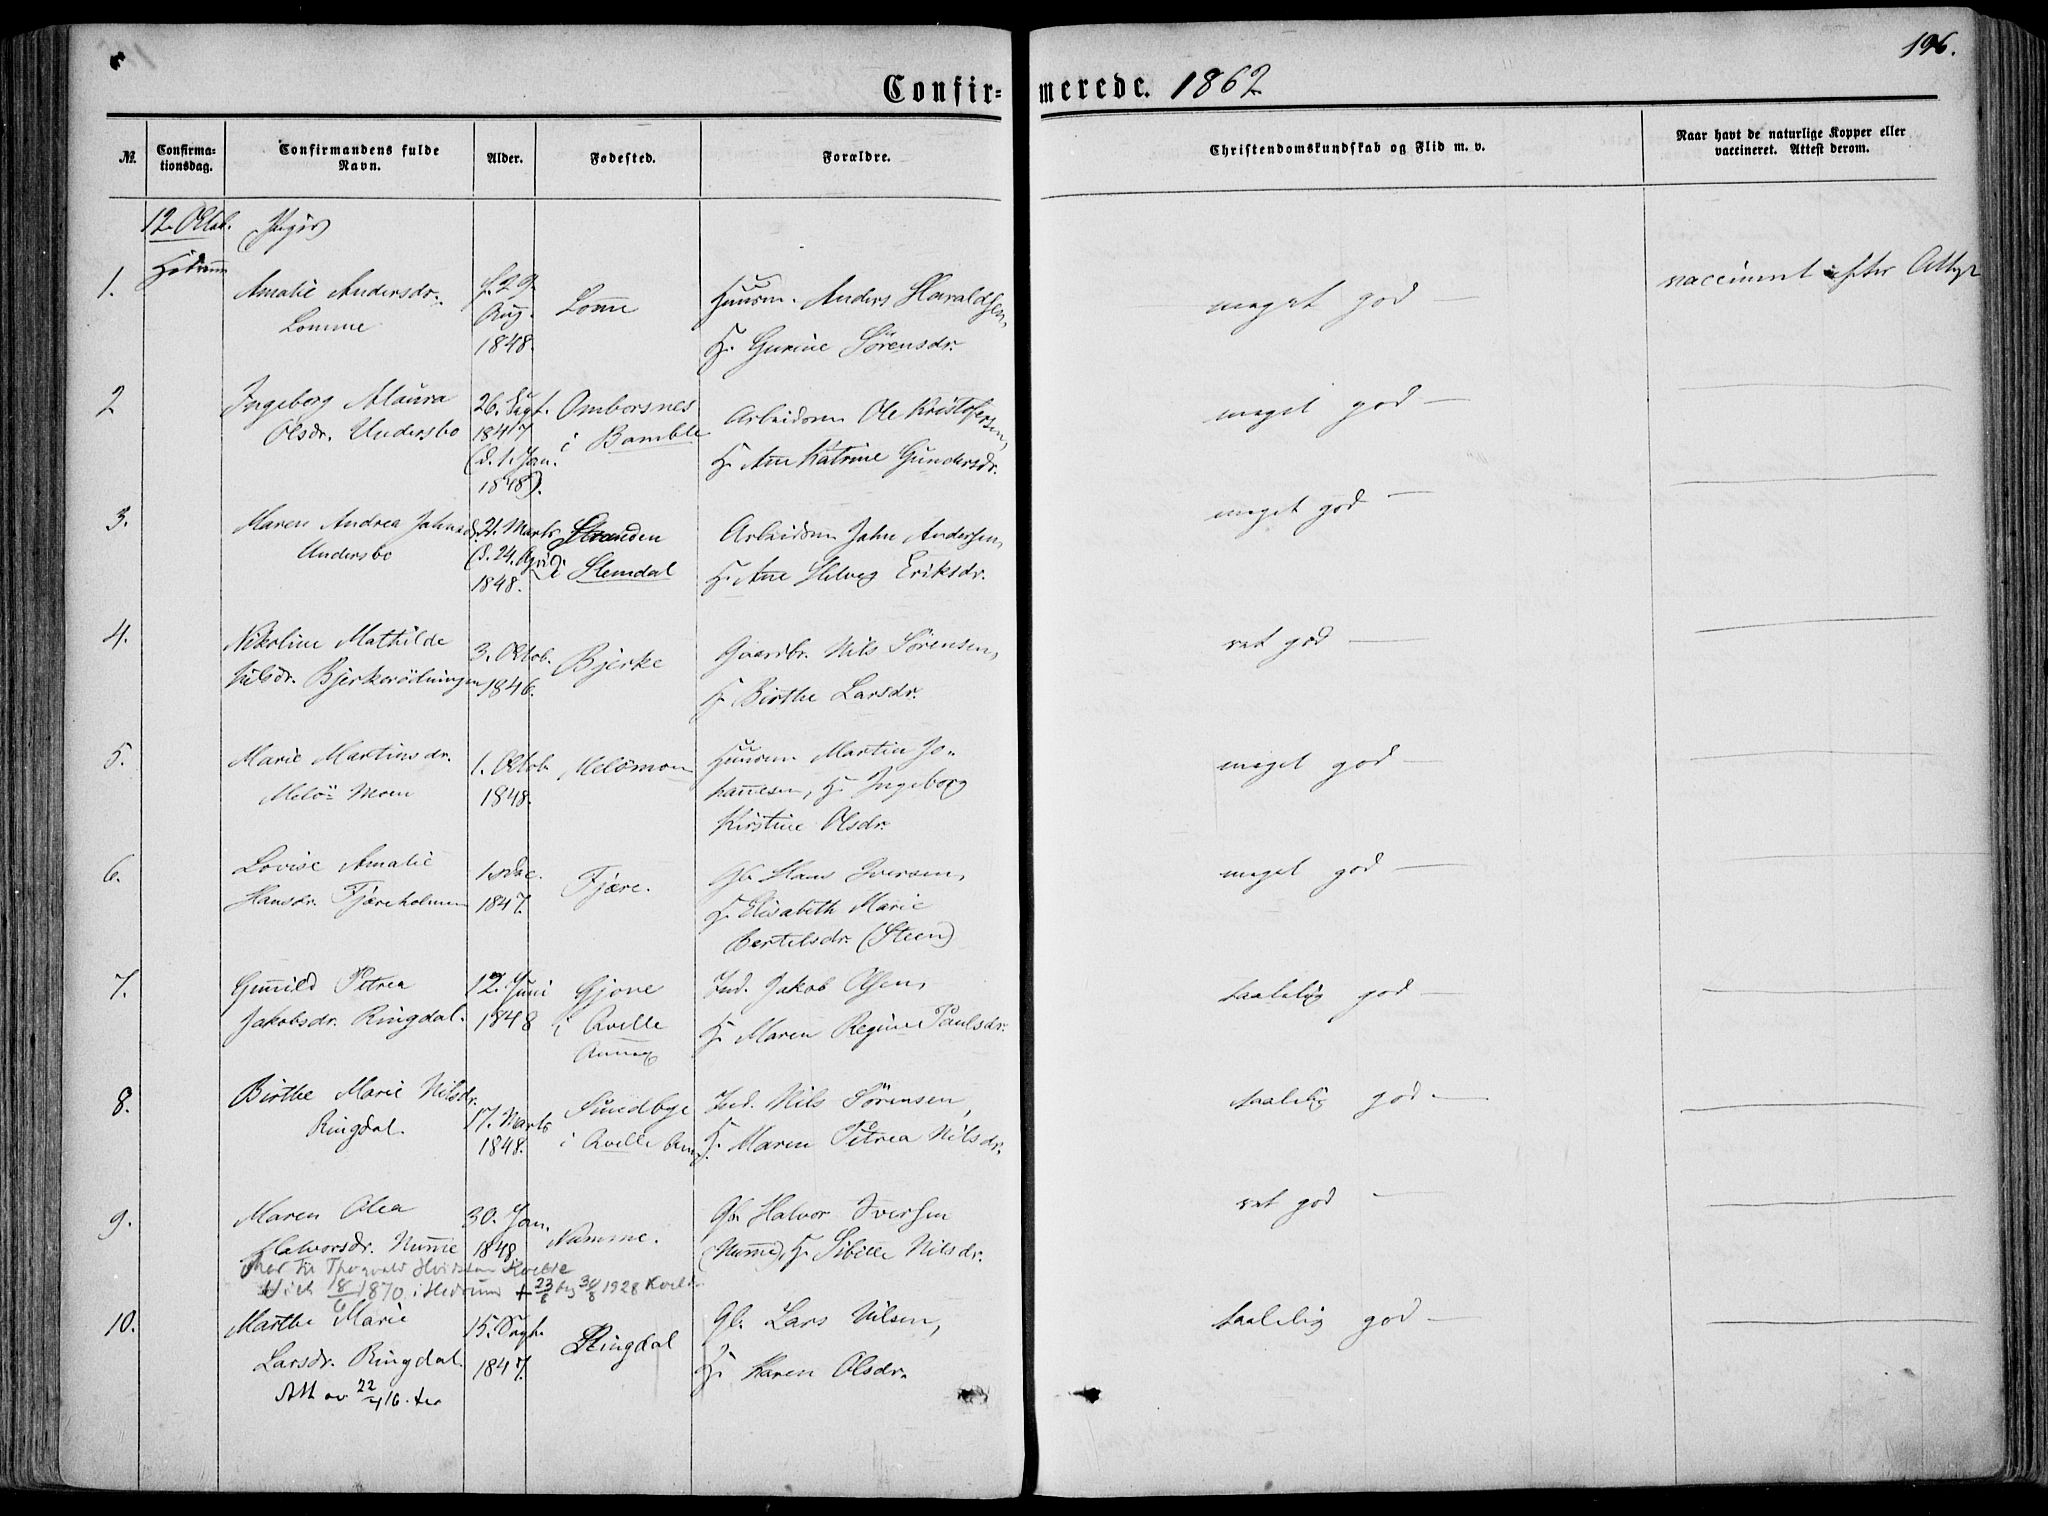 196.
Confirmerede. 1862
№.
Confirmationsdag.
Confirmandens fulde Navn.
Alder.
Fødested.
Forældre.
Christendomskundskab og Flid m. v.
Naar havt de naturlige Kopper eller vaccineret. Attest derom.
12. Oktob. Piger
Hedrum
1. Amalie Andersdr. f. 29 Lomne Huusm. Anders Haraldsen, meget god — vaccineret efter Attest
Lomme Aug. H. Gurine Sørensdr.
1848.
2 Ingeborg Maura 26. Sept. Omborsnes Arbeidsm Ole Kristofersen, meget god —
Olsdr. Undersbo 1847 i Bamble H. Ane Katrine Gundersdr.
(d. 1. Jan.
1848).
3. Maren Andrea Jahnsdr. 21. Marts Stranden Arbeidsm Jahn Andersen, meget god —
Undersbo (d. 24. April) i Slemdal H. Ane Helvig Eriksdr.
1848.
4. Nikoline Mathilde 3. Oktob. Bjerke Gaardbr. Nils Sørensen, ret god —
Nilsdr. Bjerkerödningen 1846. H. Birthe Larsdr.
5. Marie Martinsdr. 1. Oktob. Melömoen Huusm. Martin Jo- meget god —
Melö- Moen 1848. hannesen, H. Ingeborg
Kirstine Olsdr.
6. Lovise Amalie 1. Dec. Fjære. Gb. Hans Iversen, meget god —
Hansdr. Fjæreholmen 1847. H. Elisabeth Marie
Bertelsdr. (Steen)
7. Gunild Petrea 12. Juni Gjone Ind. Jakob Olsen, taalelig god —
Jakobsdr. Ringdal. 1848 i Qvelle H. Maren Regine Paulsdr.
Annex
8. Birthe Marie Nilsdr. 17. Marts Sundbye Ind. Nils Sörensen, taalelig god —
Ringdal. 1848. i Qvelle H. Maren Petrea Nilsdr.
9. Maren Olea 30. Jan. Numme. Gb. Halvor Iversen ret god —
Halvorsdr. Numme 1848. (Numme), H. Sibille Nilsdr.
Mor til Thorvald Kvelde
18/6 1870 i Hedrum + 23/8 beg 30/8 1928 Kvelde
10. Marthe Marie 15. Ringdal Gb. Lars Nilsen, taalelig god —
Larsdr. Ringdal. 1847. H. Karen Olsdr.
Att av 22/4 16.